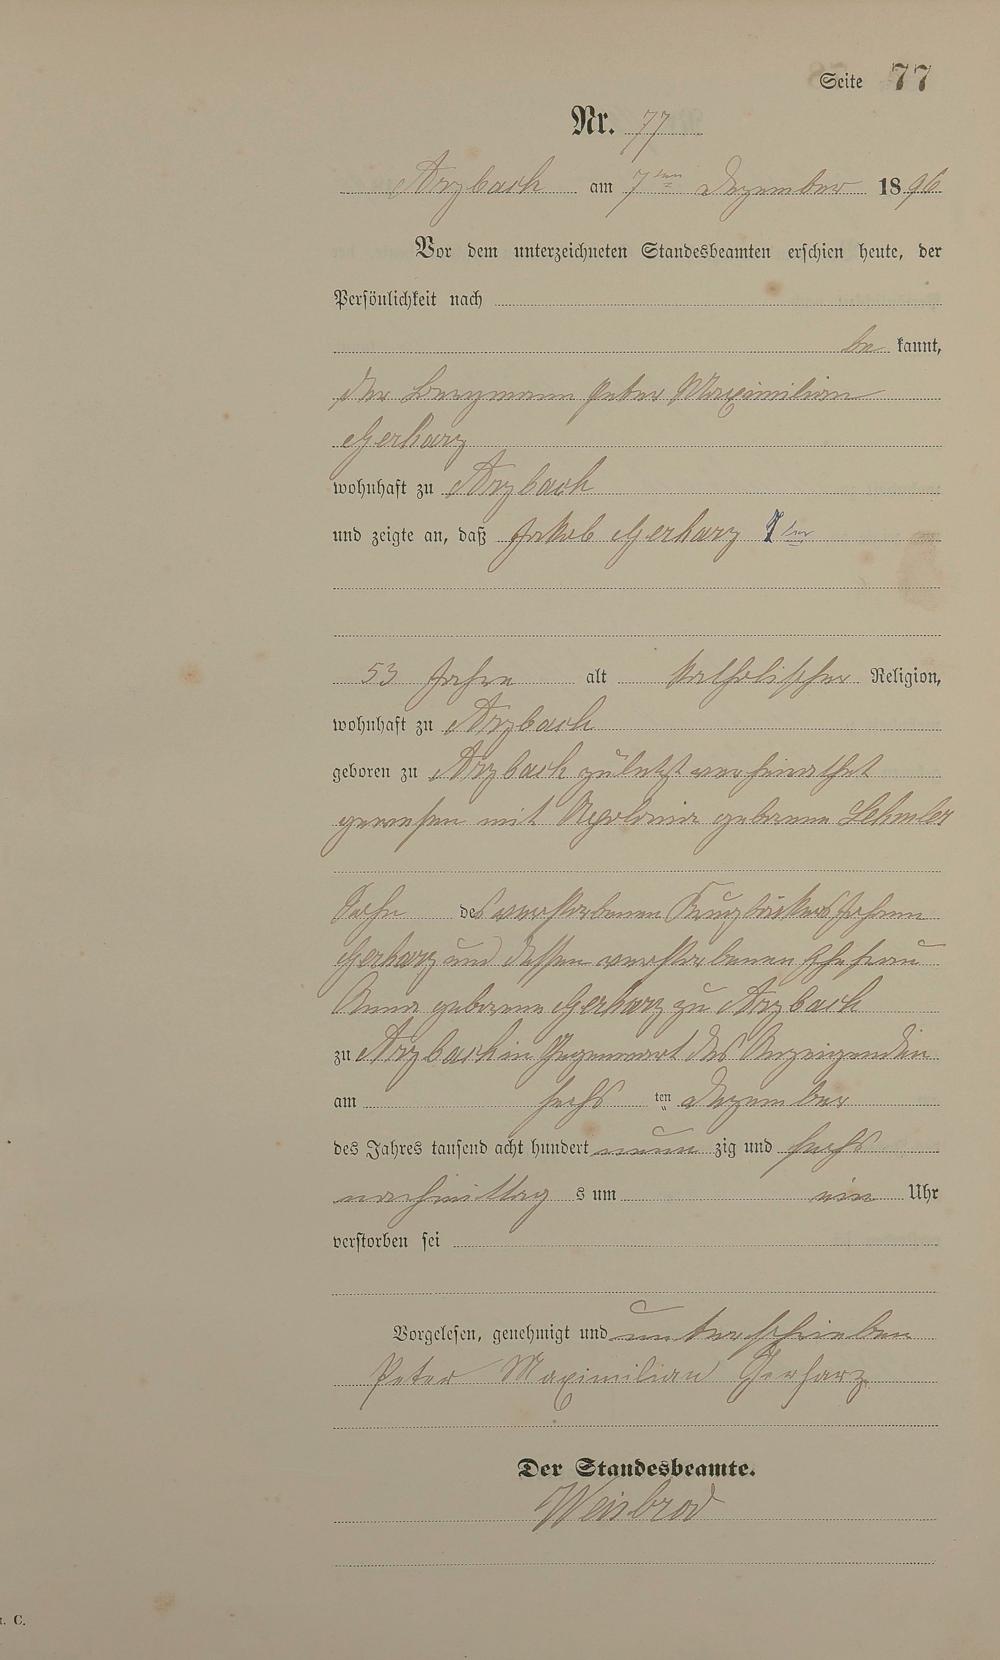 Seite 77
Nr. 77
Arzbach am 7ten Dezember 1896
Vor dem unterzeichneten Standesbeamten erschien heute, der
Persönlichkeit nach
be kannt,
der Bergmann Peter Maximilian
Gerharz
wohnhaft zu Arzbach
und zeigte an, daß Jakob Gerharz 1ter
53 Jahre alt katholischer Religion,
wohnhaft zu Arzbach
geboren zu Arzbach zuletzt verheirathet
gewesen mit Apolonia geborene Lehmler
Sohn des verstorbenen Krugbäckers Johann
Gerharz und dessen verstorbenen Ehefrau
Anna geborene Gerharz zu Arzbach
zu Arzbach in Gegenwart des Anzeigenden
am sechs ten Dezember
des Jahres tausend acht hundert neun zig und sechs
nachmittag s um ein Uhr
verstorben sei
Vorgelesen, genehmigt und unterschrieben
Peter Maximilian Gerharz
Der Standesbeamte.
Weisbrod
. C.